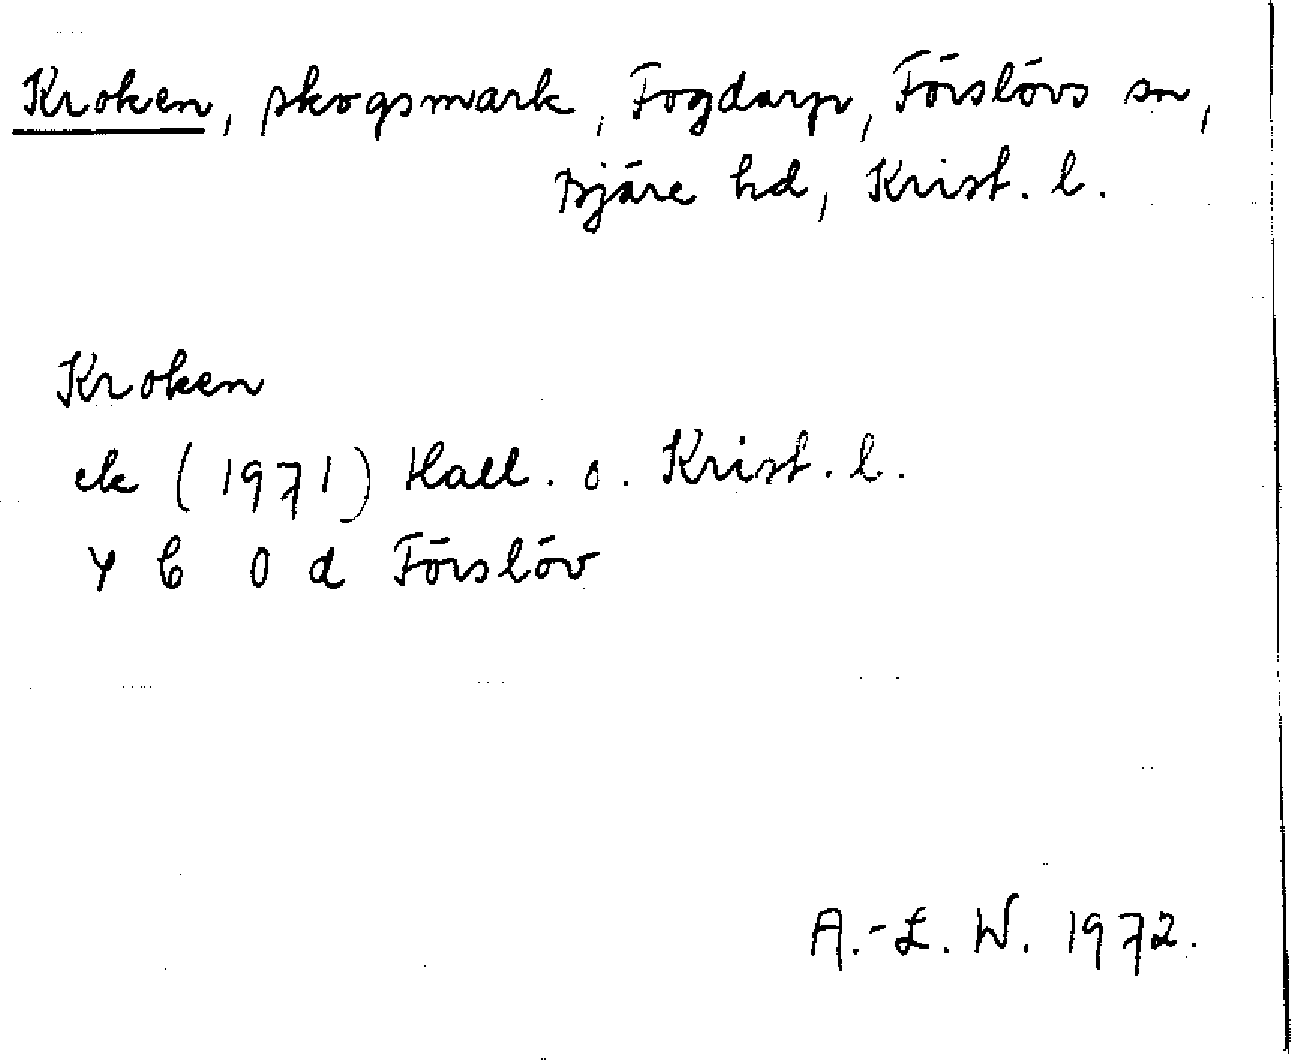 Kroken, skogsmark, Fogdarp, Förslövs sn,
Bjäre hd, Krist. l.
Kroken
ek (1971) Hall. o. Krist. l.
4 C 0 d Förslöv
A.-L. W. 1972.